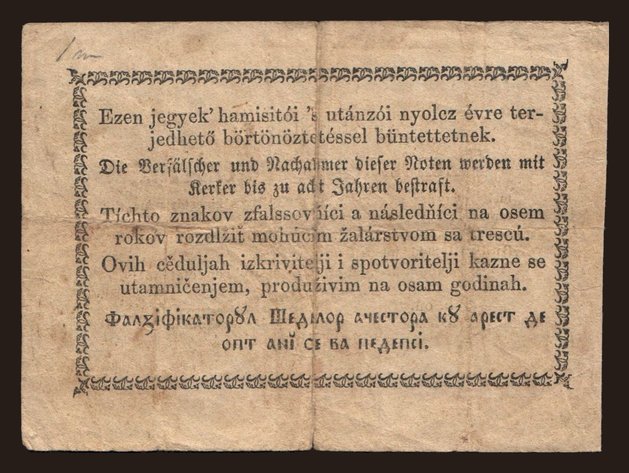 Ezen jegyek’ hamisitói ’s utánzói nyolcz évre ter-
jedhető börtönöztetéssel büntettetnek.
Die Verfälscher und Nachahmer dieser Noten werden mit
Kerker bis zu acht Jahren bestraft.
Tíchto znakov zfalssovňíci a následňíci na osem
rokov rozdlžiť mohúcim žalárstvom sa trescú.
Ovih cěduljah izkrivitelji i spotvoritelji kazne se
utamničenjem, produživim na osam godinah.
Фалꙋіфікаторꙋл Шеділор ачестора кꙋ арест де
опт анї се ва педепсі.